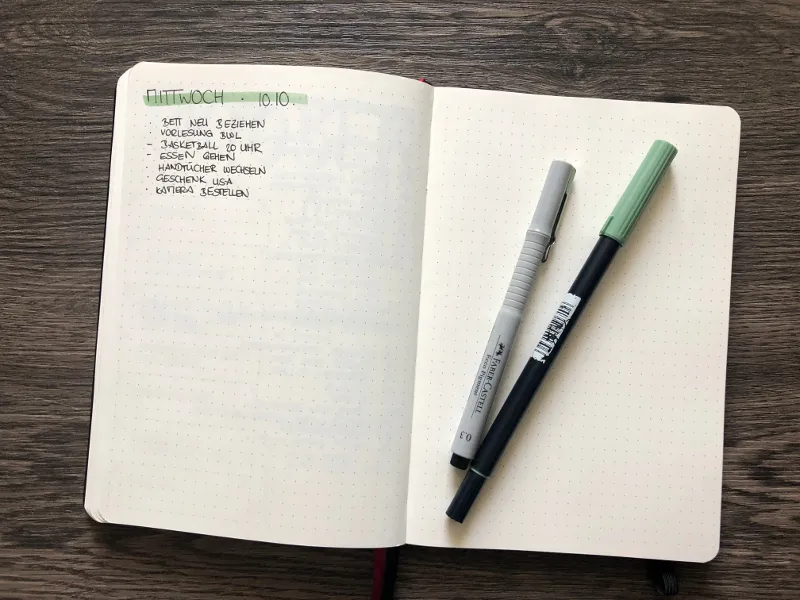 MITTWOCH · 10.10.
· BETT NEU BEZIEHEN
· VORLESUNG BWL
– BASKETBALL 20 UHR
– ESSEN GEHEN
· HANDTÜCHER WECHSELN
· GESCHENK LISA
· KAMERA BESTELLEN
FABER-CASTELL
0.3